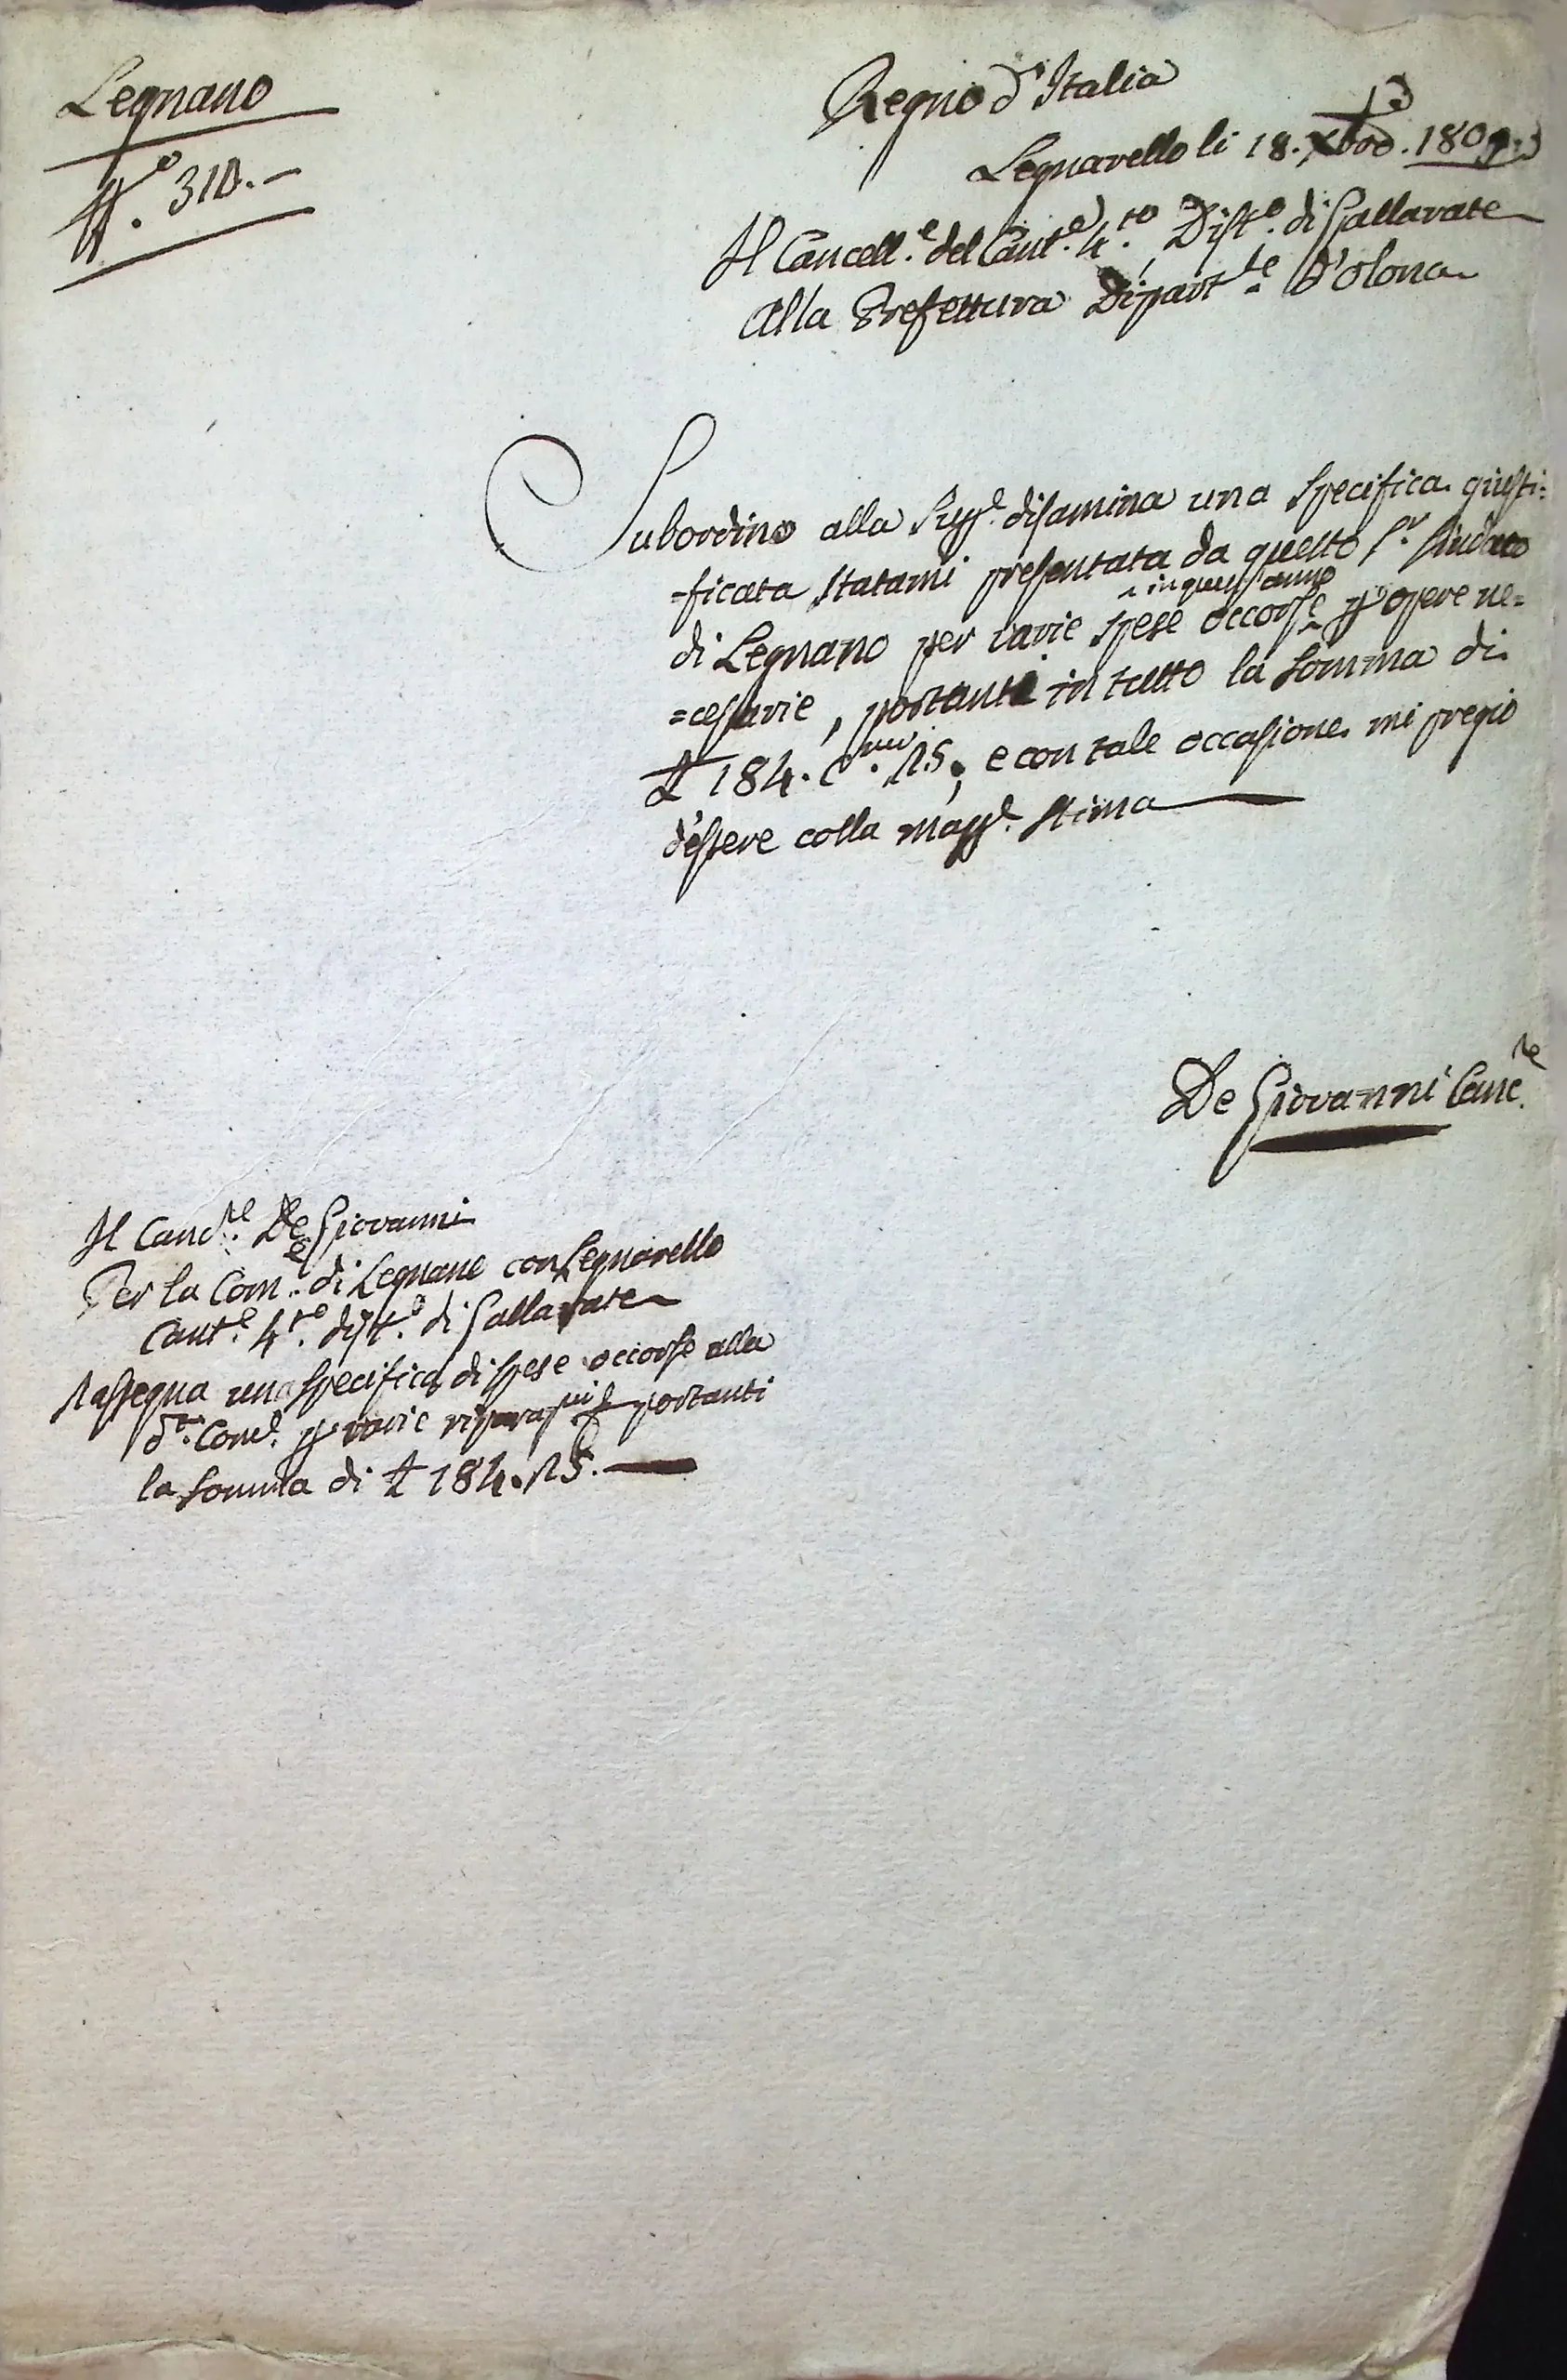 Legnano
N.º 310.-
Regno d'Italia
Legnarello li 18. Xbre. 1807.
Il Cancell.e del Cant.e 4.to, Dist.o di Gallarate
Alla Prefettura Dipart.le d'Olona
Subordino alla Sup.e disamina una specifica giusti=
=ficata statami presentata da questo S.r Sindaco
di Legnano per varie spese occorse in quest'anno p opere ne=
=cessarie, portanti in tutto la somma di
£ 184. C.mi 25, e con tale occasione mi pregio
d'essere colla magg.e stima
De Giovanni Canc.re
Il Canc.re De Giovanni
Per la Com.e di Legnano con Legnarello
Cant.e 4.to dist.o di Gallarate
Rassegna una specifica di spese occorse alla
d.a Com.e p varie riparaz.ni portanti
la somma di £ 184. 25.